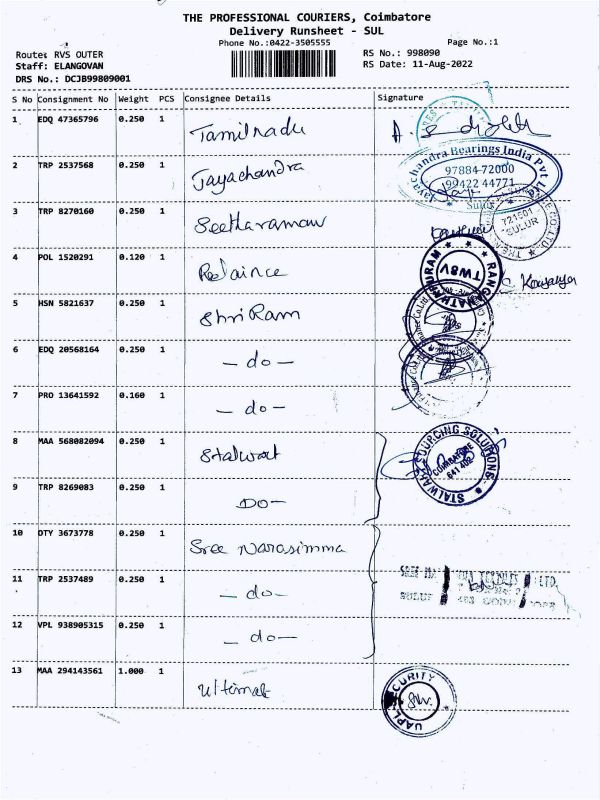 THE PROFESSIONAL COURIERS, Coimbatore
Delivery Runsheet - SUL
Phone No.:0422-3505555
Page No.:1
Route: RVS OUTER
RS No.: 998090
Staff: ELANGOVAN
RS Date: 11-Aug-2022
DRS No.: DCJB99809001
S No Consignment No Weight PCS Consignee Details Signature
1 EDQ 47365796 0.250 1 Tamilnadu
2 TRP 2537568 0.250 1 Jayachandra
Jayachandra Bearings India Pvt Ltd
97884 72000
99422 44771
Sulur
3 TRP 8270160 0.250 1 Seetharaman
721601
SULUR
4 POL 1520291 0.120 1 Reliance
RANGANATHAPURAM
TWBV
5 HSN 5821637 0.250 1 Shri Ram
6 EDQ 20568164 0.250 1 - do -
7 PRO 13641592 0.160 1 - do -
8 MAA 568082094 0.250 1 Stalwart
STALWART SOURCING SOLUTIONS
COIMBATORE
641 402
9 TRP 8269083 0.250 1 DO -
10 DTY 3673778 0.250 1 Sree Narasimma
11 TRP 2537489 0.250 1 - do -
LTD.
SULUR
12 VPL 938905315 0.250 1 - do -
13 MAA 294143561 1.000 1 Ultimate
UAPL SECURITY